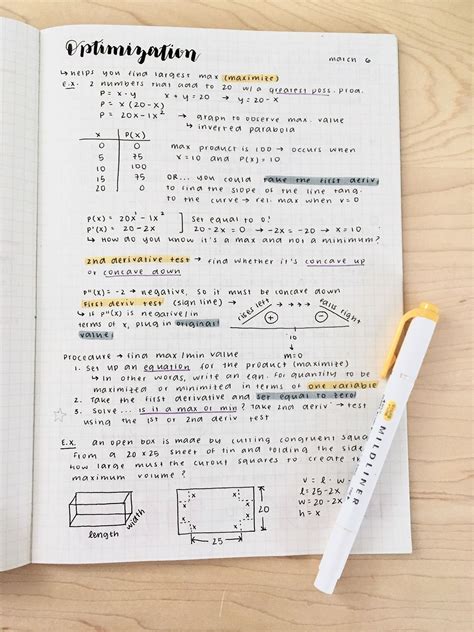 Optimization
march 6
↳ helps you find largest max (maximize)
E.X. 2 numbers that add to 20 w/ a greatest poss. prod.
P = x · y x + y = 20 → y = 20 - x
P = x (20 - x)
P = 20x - 1x² → graph to observe max. value
↳ inverted parabola
x P(x)
0 0
5 75
10 100
15 75
20 0
max product is 100 → occurs when
x = 10 and P(x) = 10
OR... you could take the first deriv.
to find the slope of the line tang.
to the curve → rel. max when v = 0
P(x) = 20x¹ - 1x² ] set equal to 0?
P'(x) = 20 - 2x ] 20 - 2x = 0 → -2x = -20 → x = 10
↳ how do you know it's a max and not a minimum?
2nd derivative test → find whether it's concave up
or concave down
P"(x) = -2 → negative, so it must be concave down
First deriv test (sign line) →
↳ if P"(x) is negative/in
terms of x, plug in original
value
rises left
fall right
+
−
10
m=0
Procedure → find max/min value
1. Set up an equation for the product (maximize)
↳ In other words, write an eqn. for quantity to be
maximized or minimized in terms of one variable
2. Take the first derivative and set equal to zero
3. Solve... is it a max or min? Take 2nd deriv → test
using the 1st or 2nd deriv test
E.X. an open box is made by cutting congruent squa
from a 20 x 25 sheet of tin and folding the side
how large must the cutout squares to create th
maximum volume?
length
width
x x
x x
x x
x x
20
25
v = l · w ·
l = 25 - 2x
w = 20 - 2x
h = x
MILDLINER